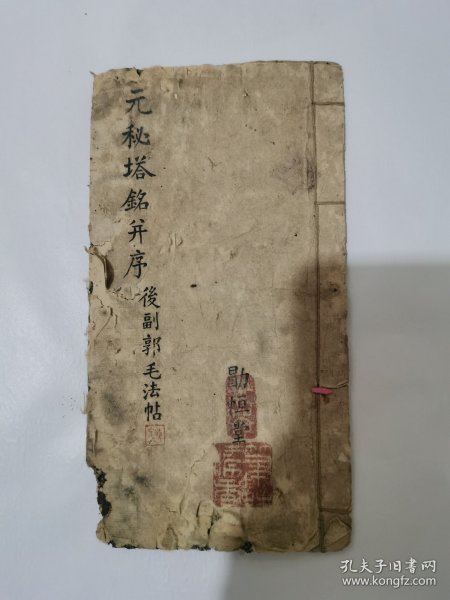 元秘塔銘并序
後副郭毛法帖
勖恒堂
孔夫子旧书网
www.kongfz.com